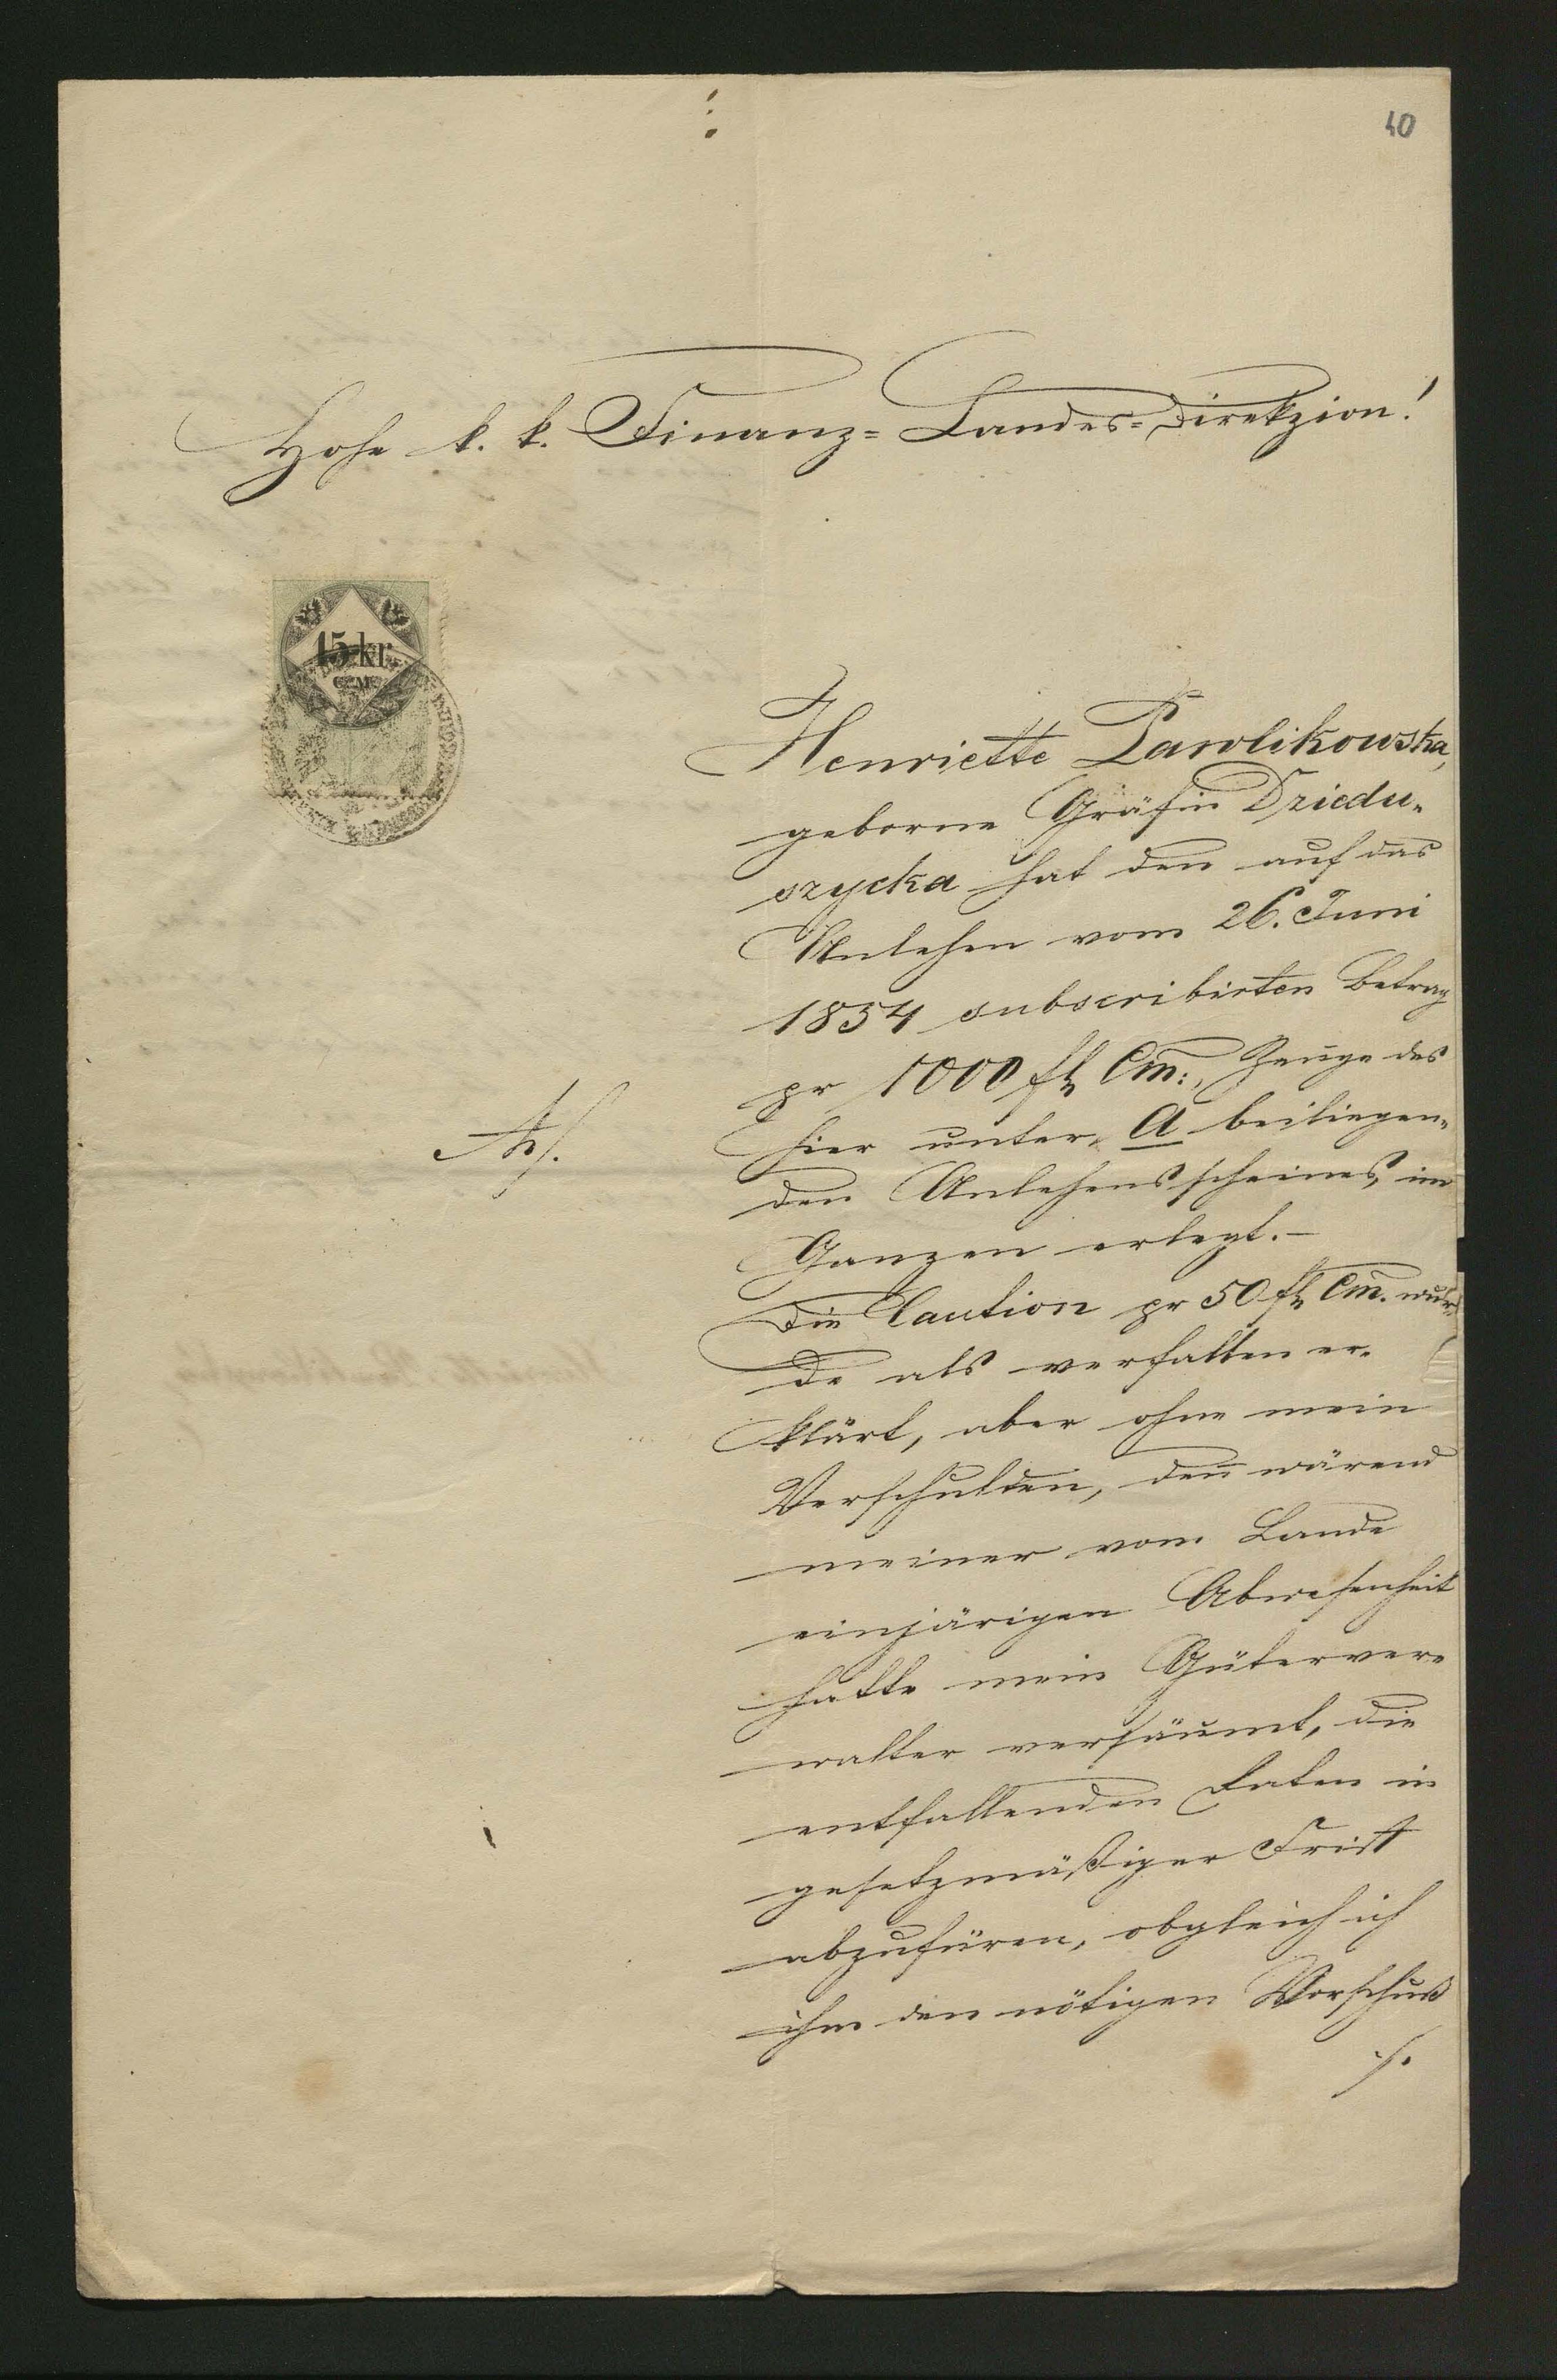 40
Hohe k. k. Finanz= Landes=Direkzion!
15 kr
C.M.
Henriette Pawlikowska,
geborne Gräfin Dziedu=
szycka hat den auf das
Anlehen vom 26. Juni
1854 subscribirten Betrag
pr 1000 fl Cm:, Zeuge des
A/.
hier unter A beiliegen=
den Anlehensscheines, im
Ganzen erlegt.—
Die Caution pr 50 fl Cm. wur=
de als verfallen er=
klärt, aber ohne mein
Verschulden, den̄ wärend
meiner vom Lande
einjärigen Abwesenheit
hatte mein Güterver=
walter versäumt, die
entfallenden Raten in
gesetzmäßiger Frist
abzufüren, obgleich ich
ihm den nötigen Vorschuß
./.